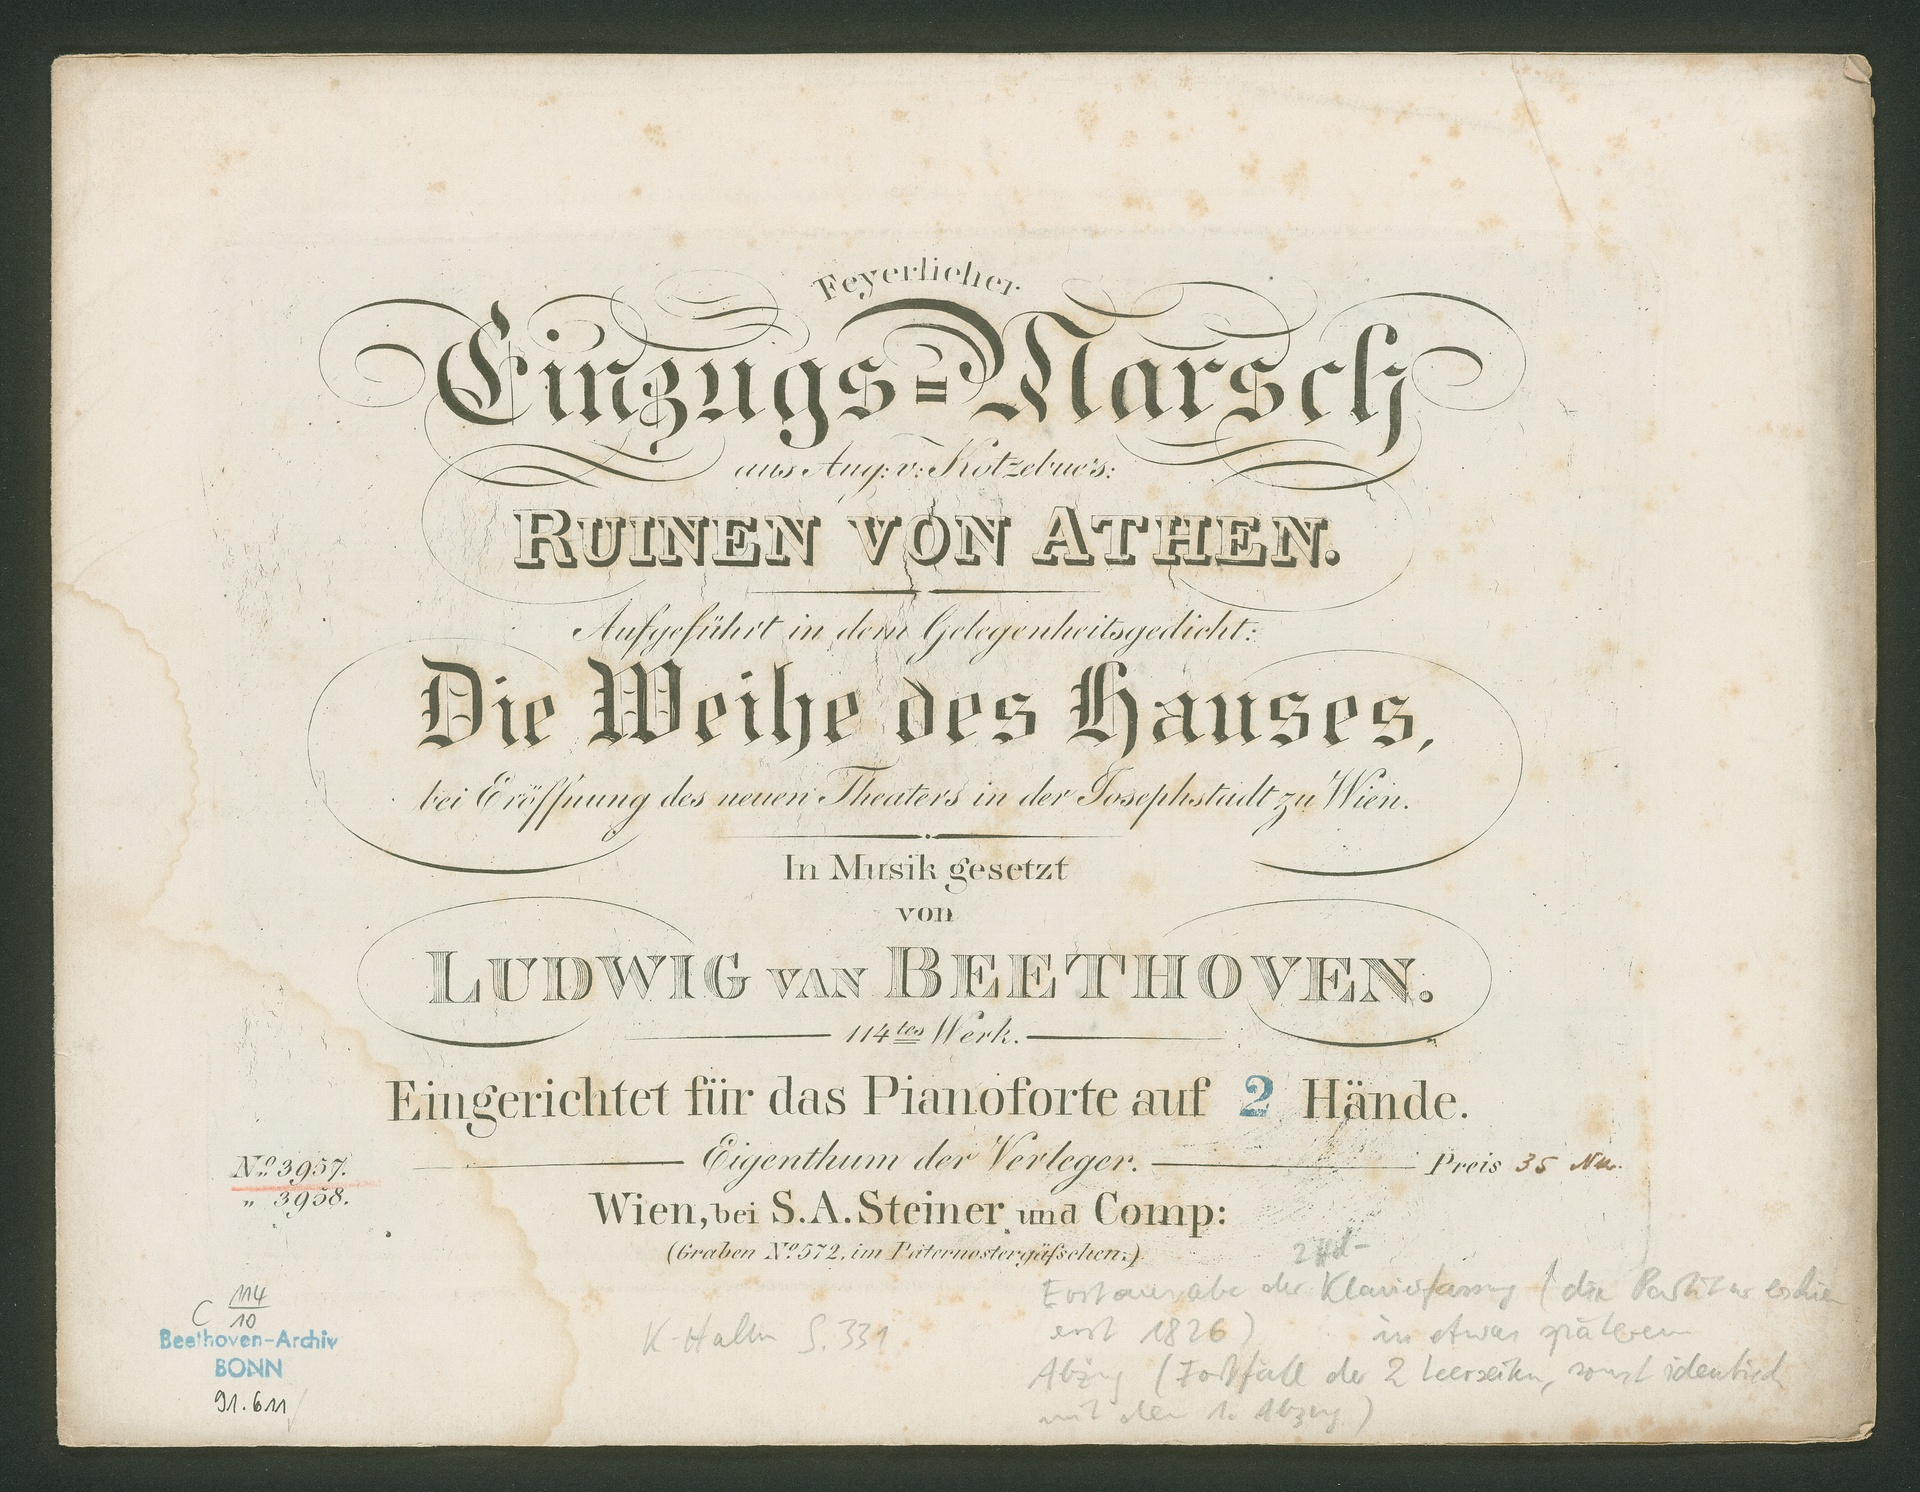 Feyerlicher
Einzugs=Marsch
aus Aug: v: Kotzebue's:
RUINEN VON ATHEN.
Aufgeführt in dem Gelegenheitsgedicht:
Die Weihe des Hauses,
bei Eröffnung des neuen Theaters in der Josephstadt zu Wien.
In Musik gesetzt
von
LUDWIG VAN BEETHOVEN.
114tes Werk.
Eingerichtet für das Pianoforte auf 2 Hände.
No. 3957.
" 3958.
Eigenthum der Verleger.
Preis 35
Wien, bei S.A. Steiner und Comp:
(Graben No. 572, im Paternostergäfschen.)
2Hd-
Erstausgabe der Klavierfassung (die Partitur
erst 1826) in etwas späterem
Abzug (Fortfall der 2 Leerseiten, sonst identisch
mit dem 1. Abzug)
K-Halm S. 331
C 114
10
Beethoven-Archiv
BONN
91.611